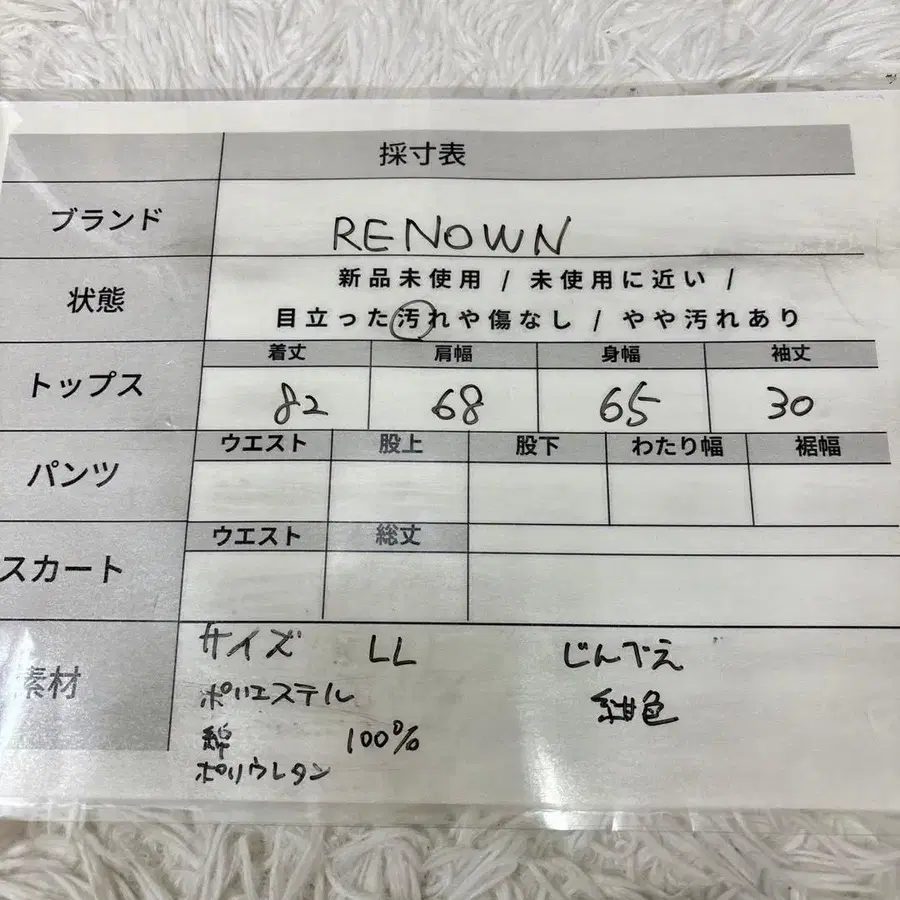 採寸表
ブランド
RENOWN
状態
新品未使用 / 未使用に近い /
目立った汚れや傷なし / やや汚れあり
トップス
着丈 肩幅 身幅 袖丈
82 68 65 30
パンツ
ウエスト 股上 股下 わたり幅 裾幅
スカート
ウエスト 総丈
素材
サイズ LL じんべえ
ポリエステル 紺色
綿 100%
ポリウレタン